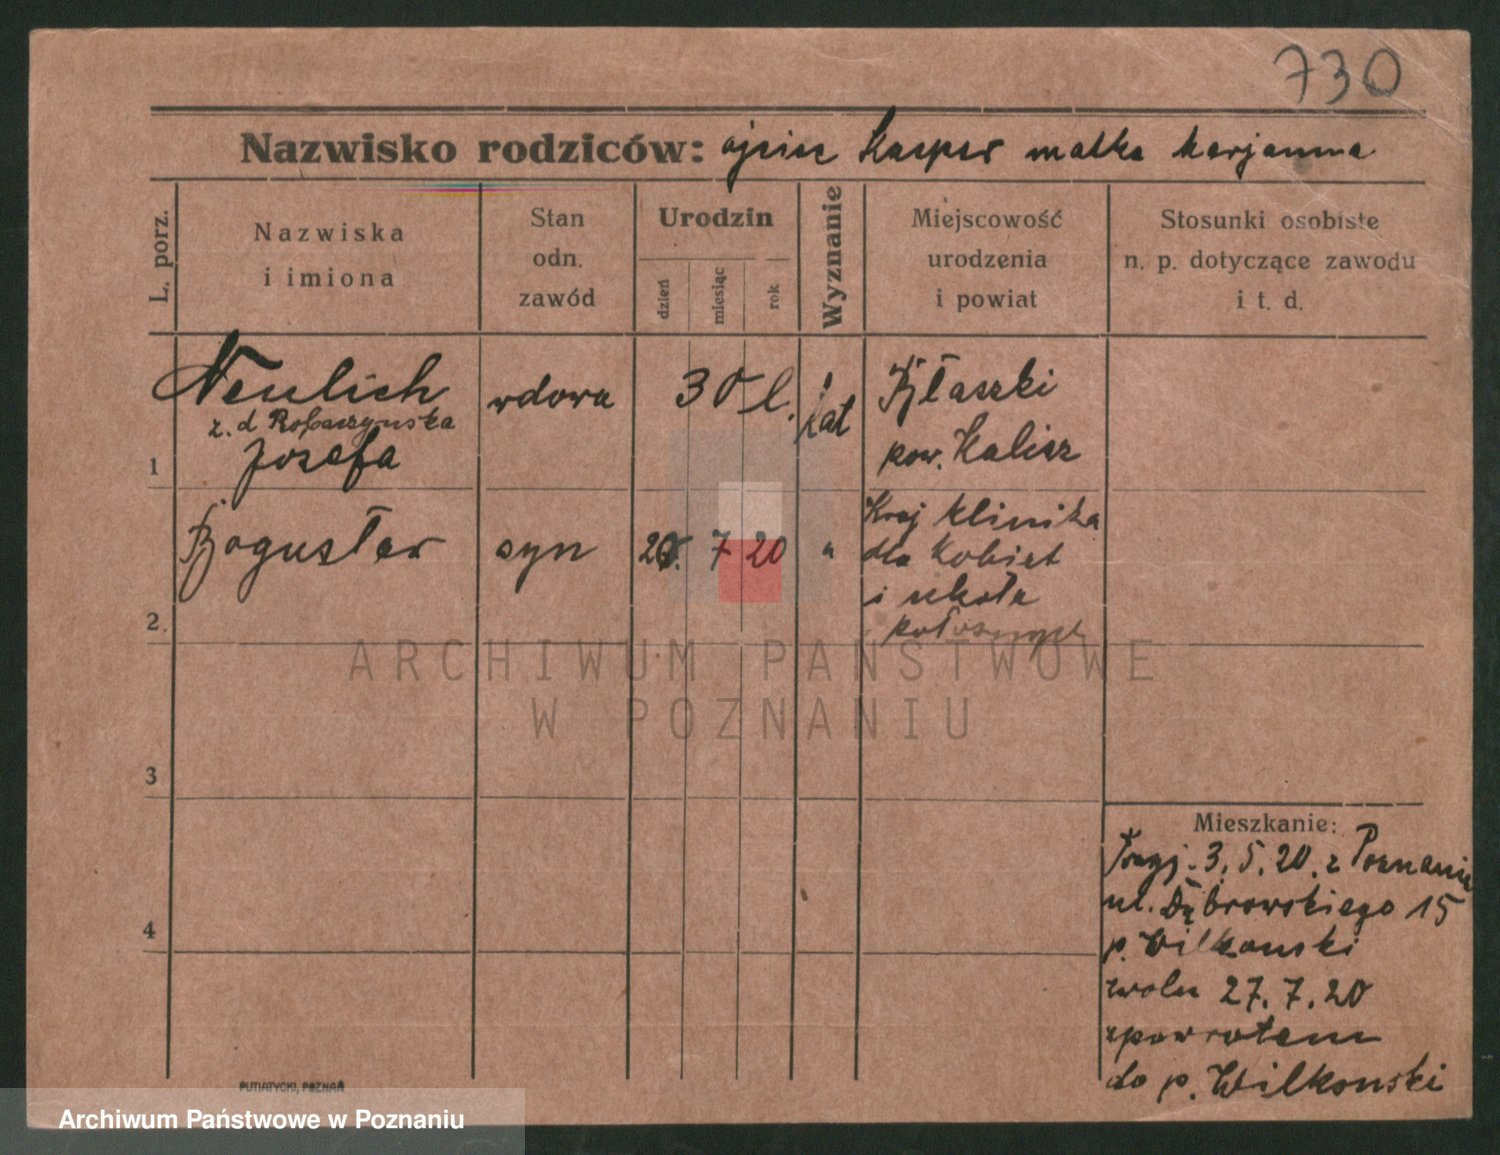 730
Nazwisko rodziców: ojciec Kasper matka Marjanna
L. porz.
Nazwiska
i imiona
Stan
odn.
zawód
Urodzin
dzień
miesiąc
rok
Wyznanie
Miejscowość
urodzenia
i powiat
Stosunki osobiste
n. p. dotyczące zawodu
i t. d.
1
Neulich
z. d
Josefa
wdowa
30 l.
kat
pow. Kalisz
2.
Bogusław
syn
7 20
"
Kraj klinika
dla kobiet
i szkoła
położnych
3
4
Mieszkanie:
3. 5. 20. z Poznania
ul. Dąbrowskiego 15
p. Wilkonski
27. 7. 20
zpowrotem
do p. Wilkonski
PUTIATYCKI, POZNAŃ
ARCHIWUM PAŃSTWOWE
W POZNANIU
Archiwum Państwowe w Poznaniu